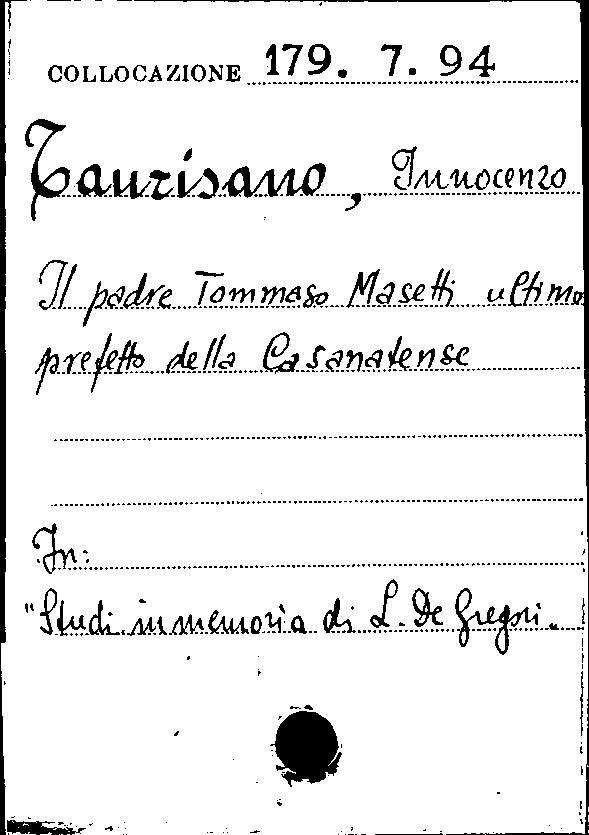 COLLOCAZIONE 179. 7. 94
Taurisano, Innocenzo
Il padre Tommaso Masetti ultimo
prefetto della Casanatense
In:
"Studi in memoria di L. De Gregori.